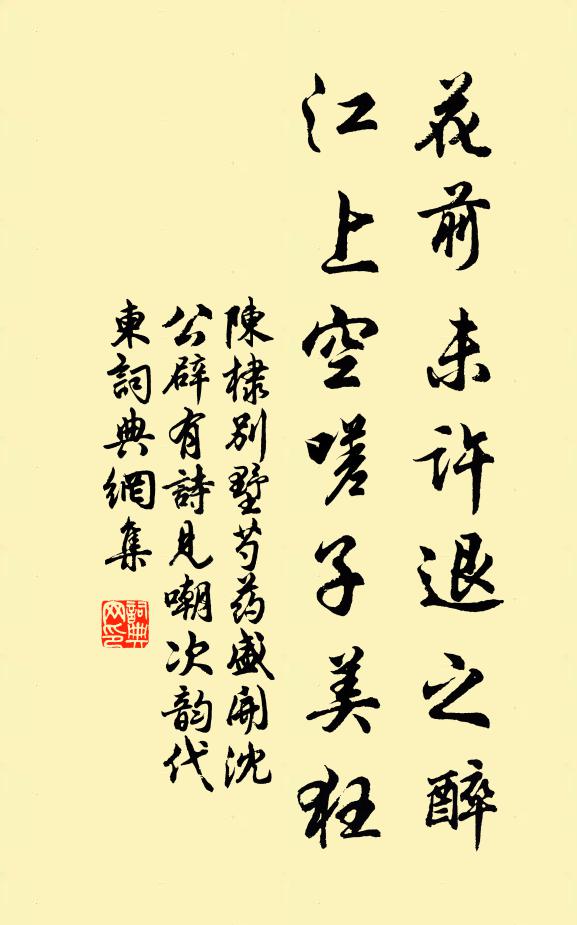 花前未許退之醉
江上空嗟子美狂
陳棣別墅芍药盛開沈
公辟有詩見嘲次韵代
東詞典網集
詞典网印